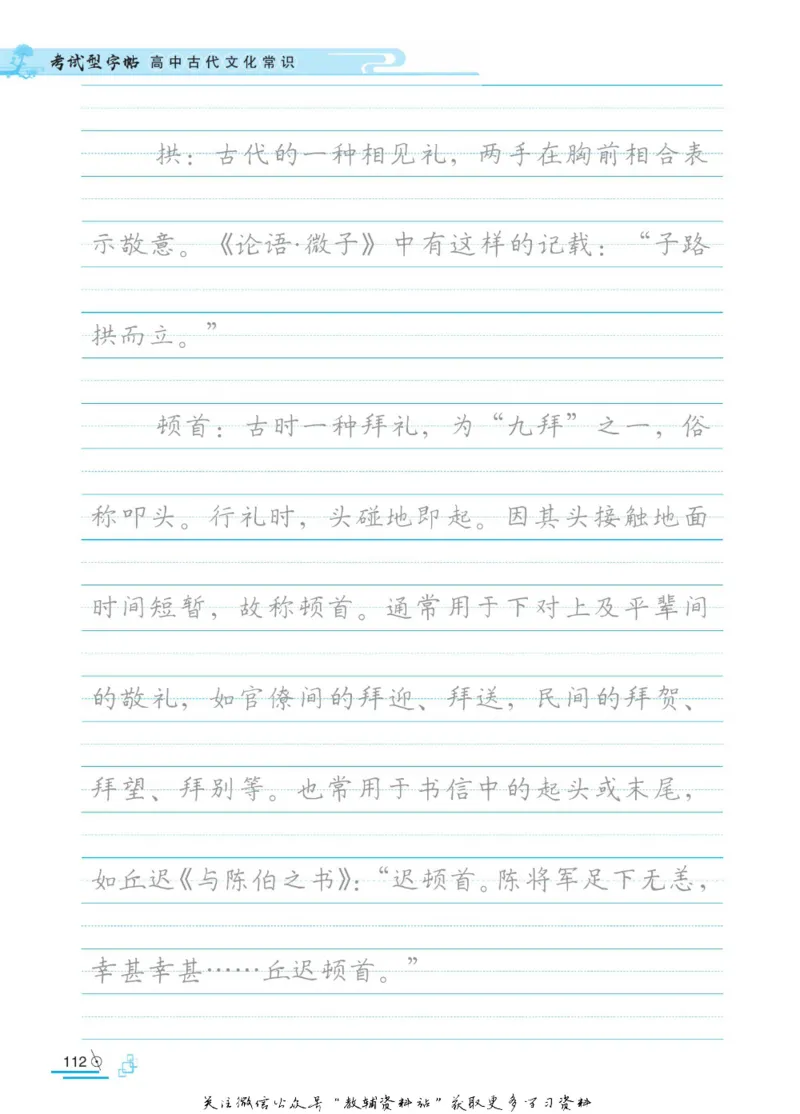 考试型字帖 高中古代文化常识
拱：古代的一种相见礼，两手在胸前相合表
示敬意。《论语·微子》中有这样的记载：“子路
拱而立。”
顿首：古时一种拜礼，为“九拜”之一，俗
称叩头。行礼时，头碰地即起。因其头接触地面
时间短暂，故称顿首。通常用于下对上及平辈间
的敬礼，如官僚间的拜迎、拜送，民间的拜贺、
拜望、拜别等。也常用于书信中的起头或末尾，
如丘迟《与陈伯之书》：“迟顿首。陈将军足下无恙，
幸甚幸甚……丘迟顿首。”
112
关注微信公众号“教辅资料站”获取更多学习资料